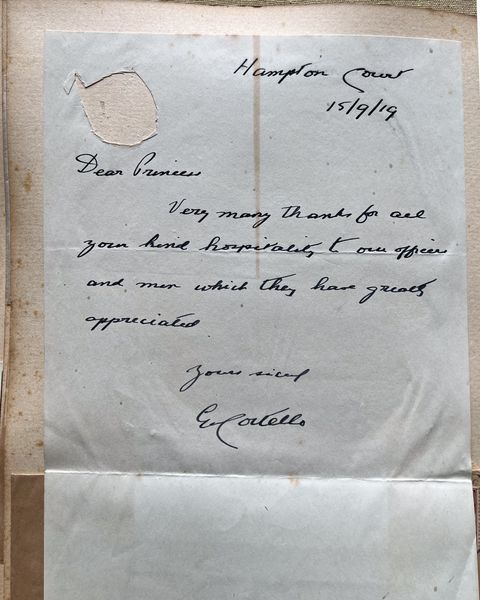 Hampton Court
15/9/19
Dear Princess
Very many thanks for all
your kind hospitality to our officers
and men which they have greatly
appreciated
Yours sincl
Costello